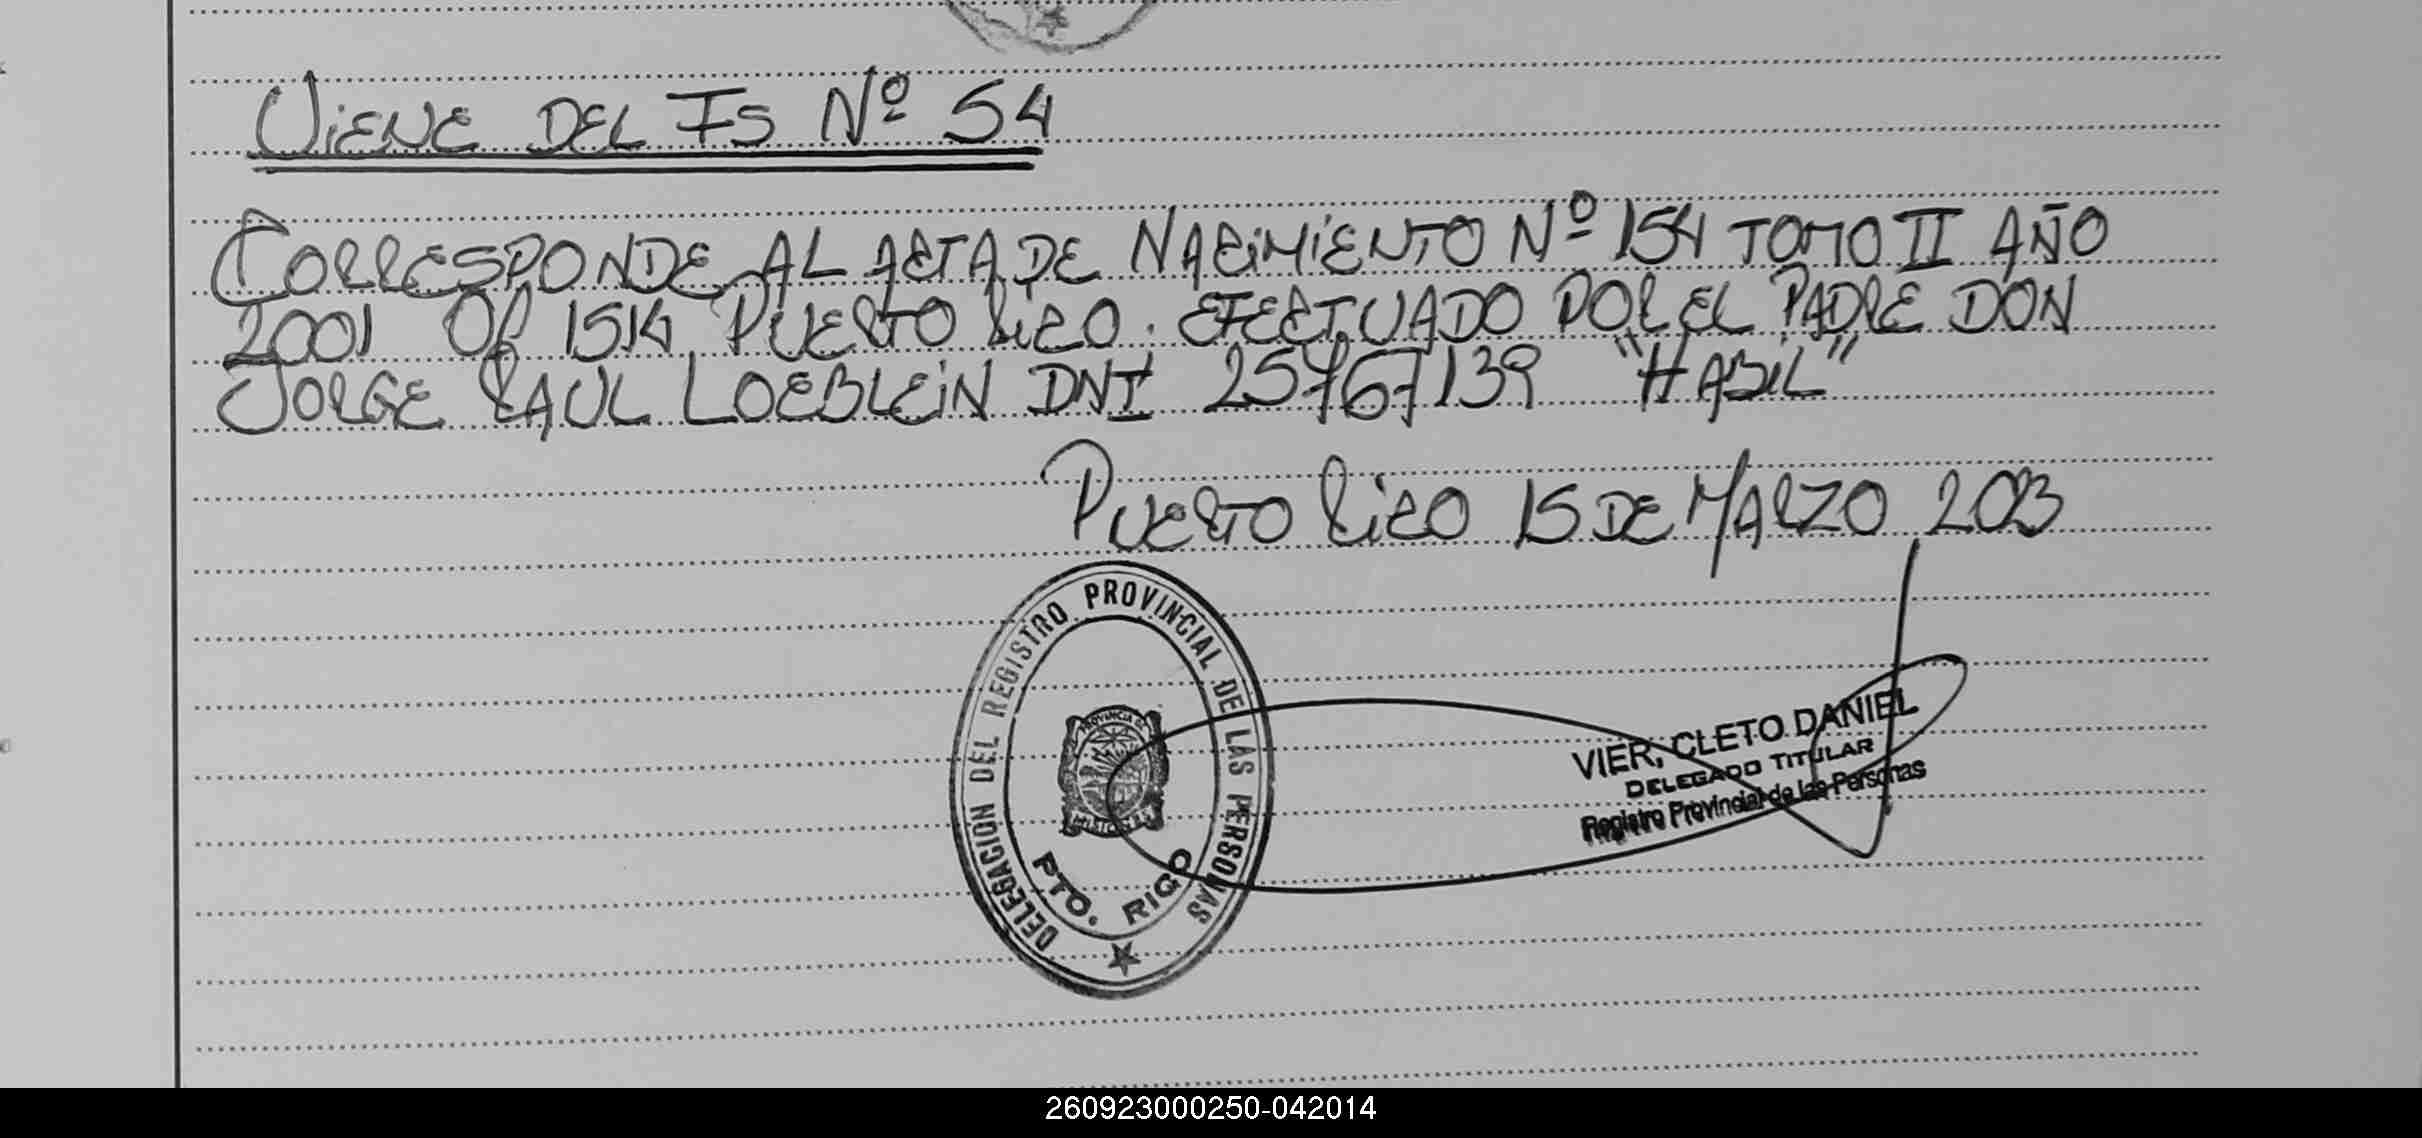 VIENE DEL FS Nº 54
CORRESPONDE AL ACTA DE NACIMIENTO Nº 154 TOMO II AÑO
2001 OF 1514 PUERTO RICO. EFECTUADO POR EL PADRE DON
JORGE RAUL LOEBLEIN DNI 25767139 "HABIL"
PUERTO RICO 15 DE MARZO 2023
DELEGACIÓN DEL REGISTRO PROVINCIAL DE LAS PERSONAS
PROVINCIA DE
MISIONES
PTO. RICO
VIER, CLETO DANIEL
DELEGADO TITULAR
Registro Provincial de las Personas
260923000250-042014